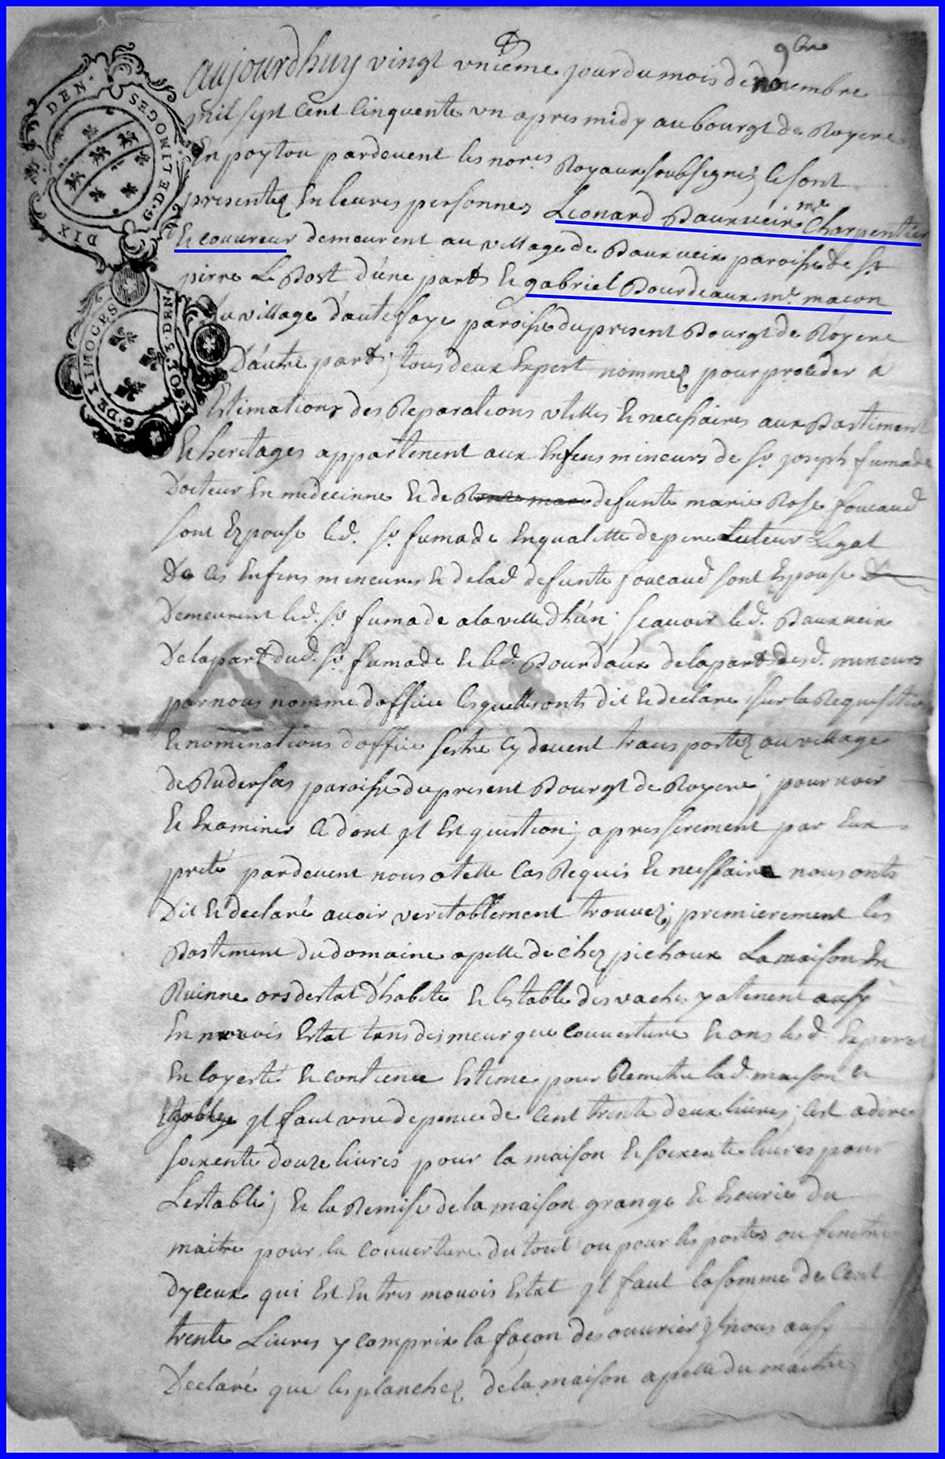 9bre
aujourdhuy vingt vnieme jour du mois de novembre
mil sept cent cinquente vn apres midy au bourgt de Royere
En poytou pardevent les nores Royaux soubsignes, se sont
presentez En leures personnes Leonard Baurueix me Charpentier
& couvreur demeurent au village de Baurueix paroisse de St
pirre Le Bost d'une part & gabriel Bourdeaux me macon
du village d'autefaye paroisse du present Bourgt de Royere
D'autre part; tous deux Expert nommez pour proceder a
Estimations des Reparations vtilles & necessaires aux Bastiment
& heritages appartenent aux Enfens mineurs de Sr joseph fumade
Docteur En medecinne & de defunte marie Rose foucaud
sont Epouse led. Sr fumade En qualitte de pere tuteur Legal
De ces Enfens mineures & de lad defunte foucaud sont Epouse
Demeurent led. Sr fumade a la ville d'hun; scavoir led. Baurueix
De la part dud. Sr fumade & led. Bourdaux de la part desd. mineurs
par nous nomme d'office lesquells onts dit & declare sur la Requisition
& nominations d'office s'estre cy devent transportez au village
de Rudersas paroisse du present Bourgt de Royere; pour voir
& Examiner Ce dont il Est question; apres serement par Eux
prete pardevent nous a telle Cas Requis & nessaire nous onts
Dit & declaré avoir veritablement trouvez; premierement les
Bastiment du domaine apelle de chez pichoux La maison En
Ruinne ors d'estat d'habite & l'estable des vache y atenent aussy
En mauvais Estat tans des meur que couverture & ons lesd. Expert
En loyerte & contience Estime pour Remetre lad. maison &
Estable il faut vne depence de Cent trente deux livres; cest a dire
soixente douze livres pour la maison & soixente livres pour
L'estable; & la Remise de la maison grange & heurie du
maitre pour la couverture du tout ou pour les portes ou fenetre
d'yceux qui Est En tres mouvois Estat il faut la somme de Cent
trente Livres y compris la façon des ouvrier; nous aussy
Declaré que les planchez de la maison apelle du maitre
DIX DEN. G. DE LIMOGES
G. DE LIMOGES